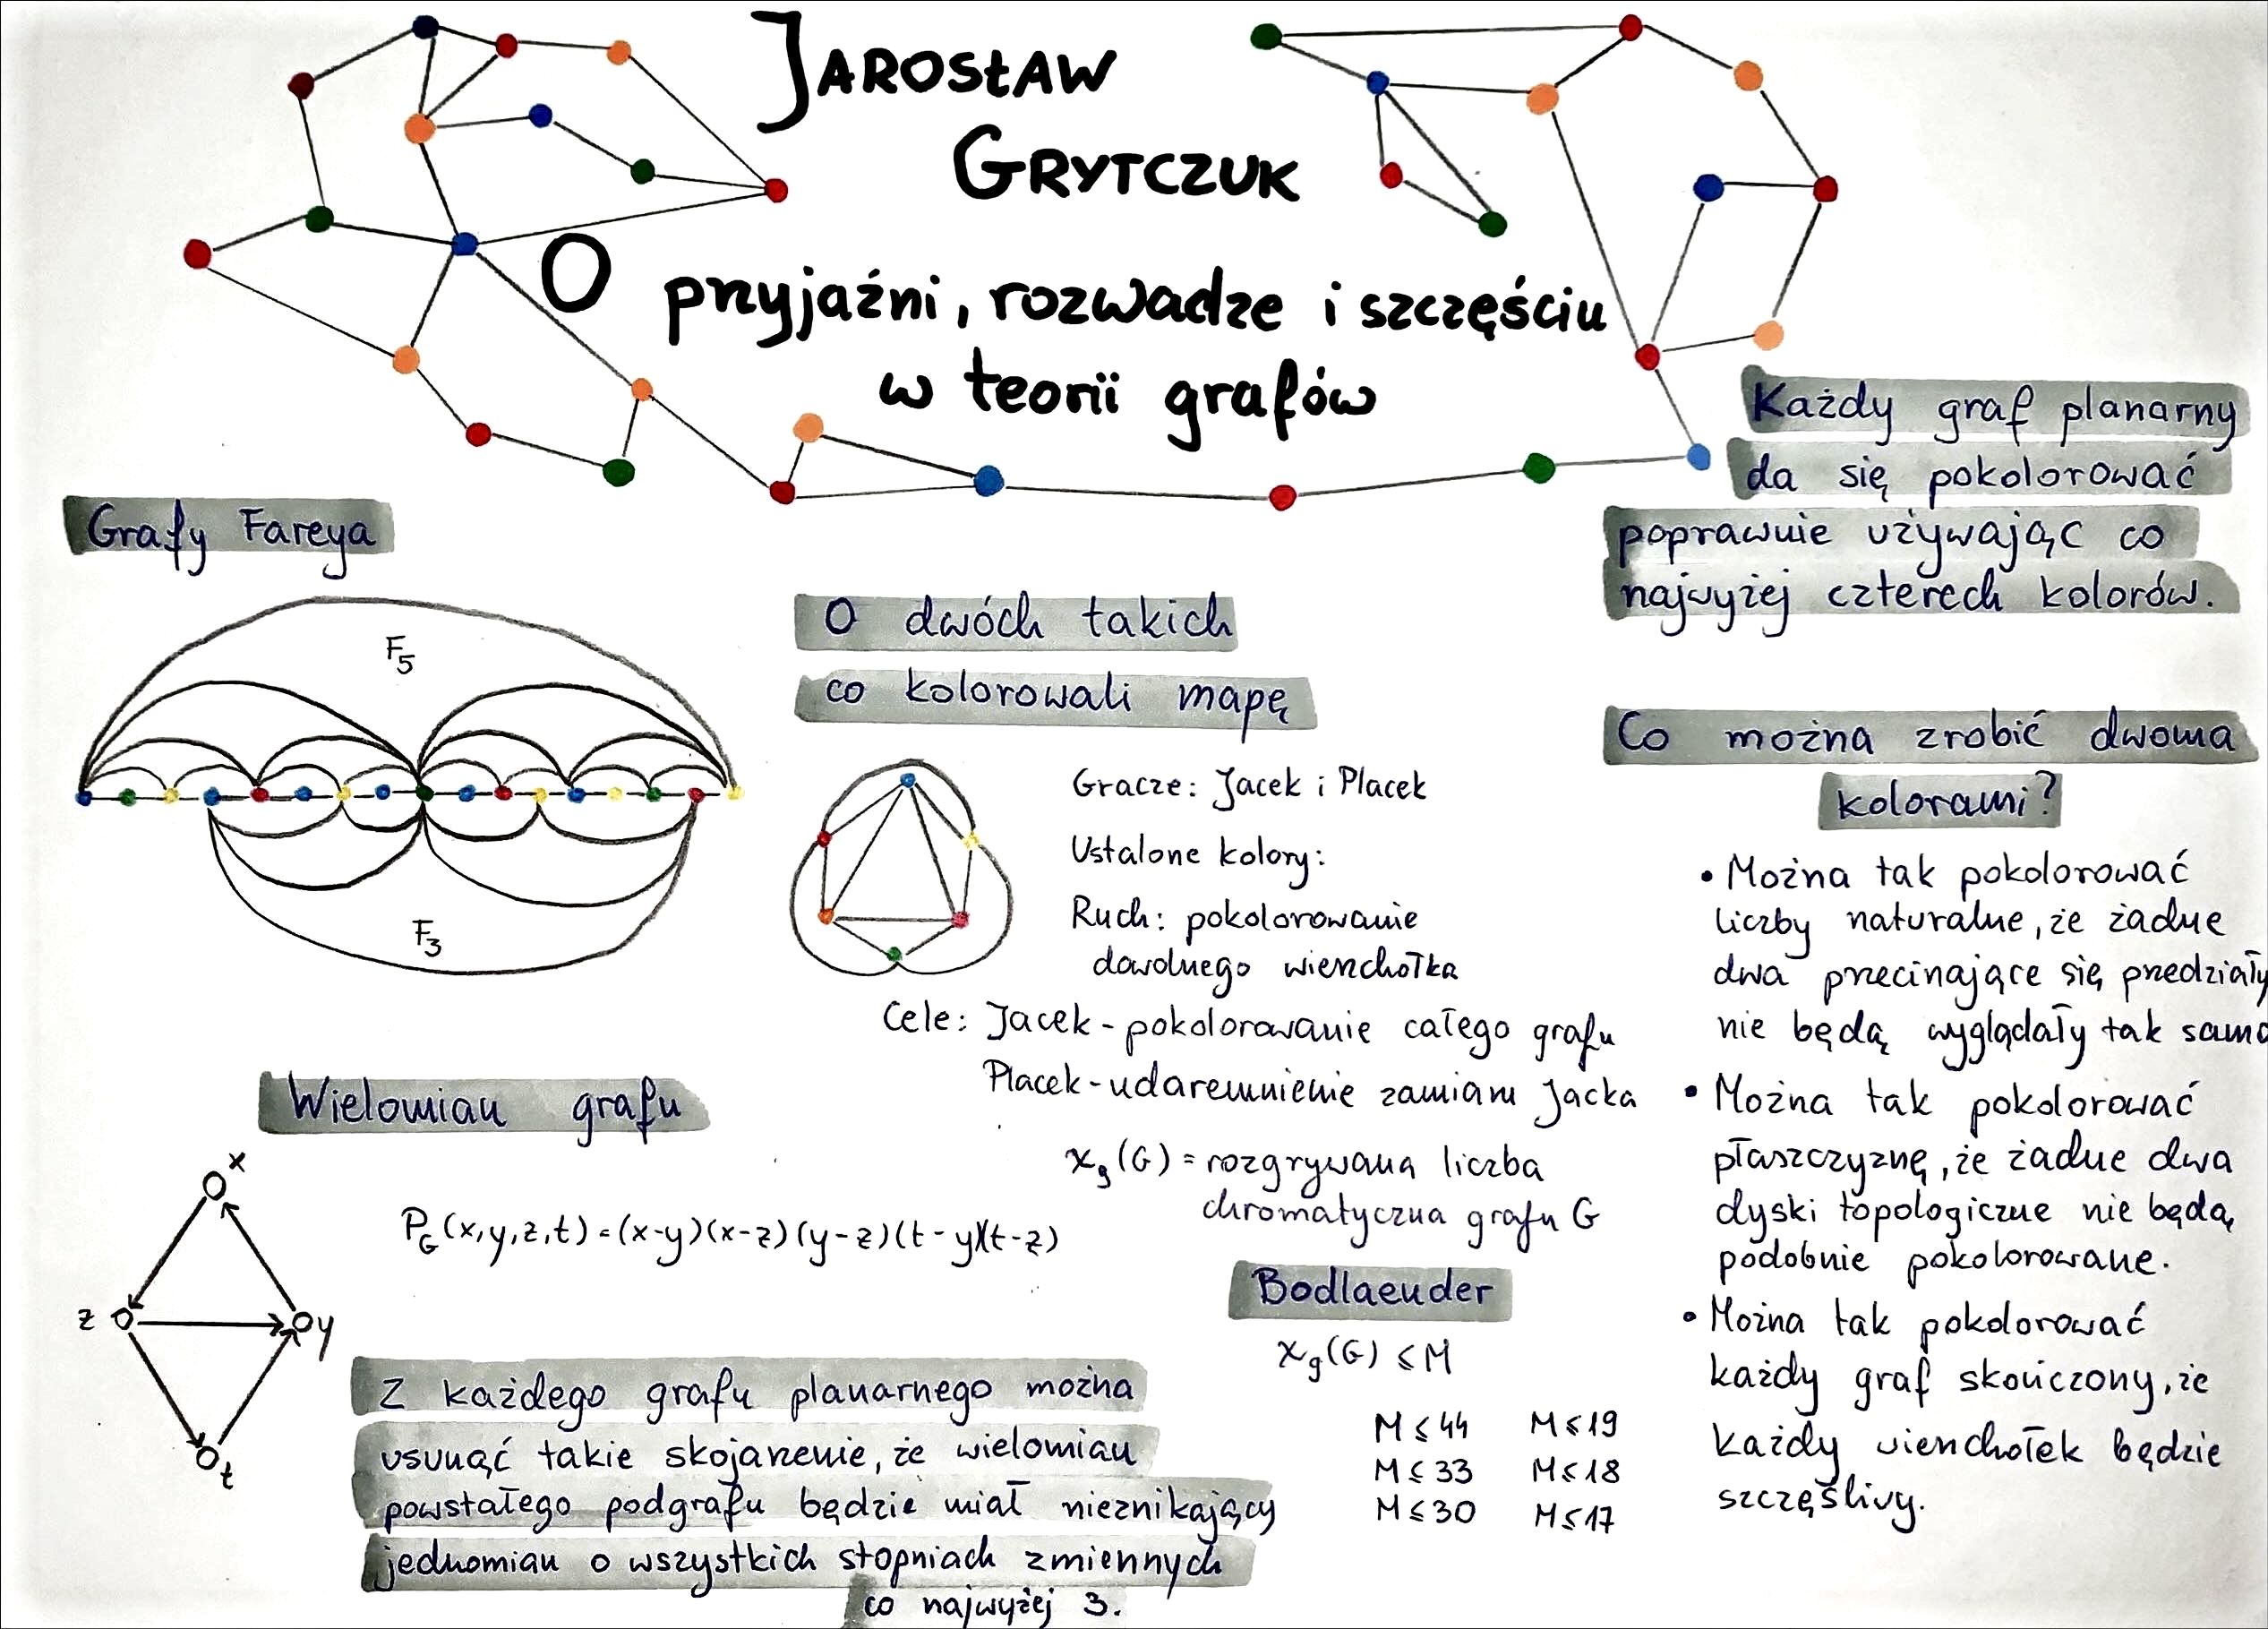 JAROSŁAW
GRYTCZUK
O przyjaźni, rozwadze i szczęściu
w teorii grafów
Każdy graf planarny
da się pokolorować
poprawnie używając co
najwyżej czterech kolorów.
Grafy Fareya
F₅
F₃
O dwóch takich
co kolorowali mapę
Gracze: Jacek i Placek
Ustalone kolory:
Ruch: pokolorowanie
dowolnego wierzchołka
Cele: Jacek - pokolorowanie całego grafu
Placek - udaremnienie zamiaru Jacka
χg(G) = rozgrywana liczba
chromatyczna grafu G
Bodlaender
χg(G) ≤ M
M ≤ 44 M ≤ 19
M ≤ 33 M ≤ 18
M ≤ 30 M ≤ 17
Co można zrobić dwoma
kolorami?
• Można tak pokolorować
liczby naturalne, że żadne
dwa przecinające się przedziały
nie będą wyglądały tak samo
• Można tak pokolorować
płaszczyznę, że żadne dwa
dyski topologiczne nie będą
podobnie pokolorowane.
• Można tak pokolorować
każdy graf skończony, że
każdy wierzchołek będzie
szczęśliwy.
Wielomian grafu
x
z
y
t
P_G(x,y,z,t) = (x-y)(x-z)(y-z)(t-y)(t-z)
Z każdego grafu planarnego można
usunąć takie skojarzenie, że wielomian
powstałego podgrafu będzie miał nieznikający
jednomian o wszystkich stopniach zmiennych
co najwyżej 3.